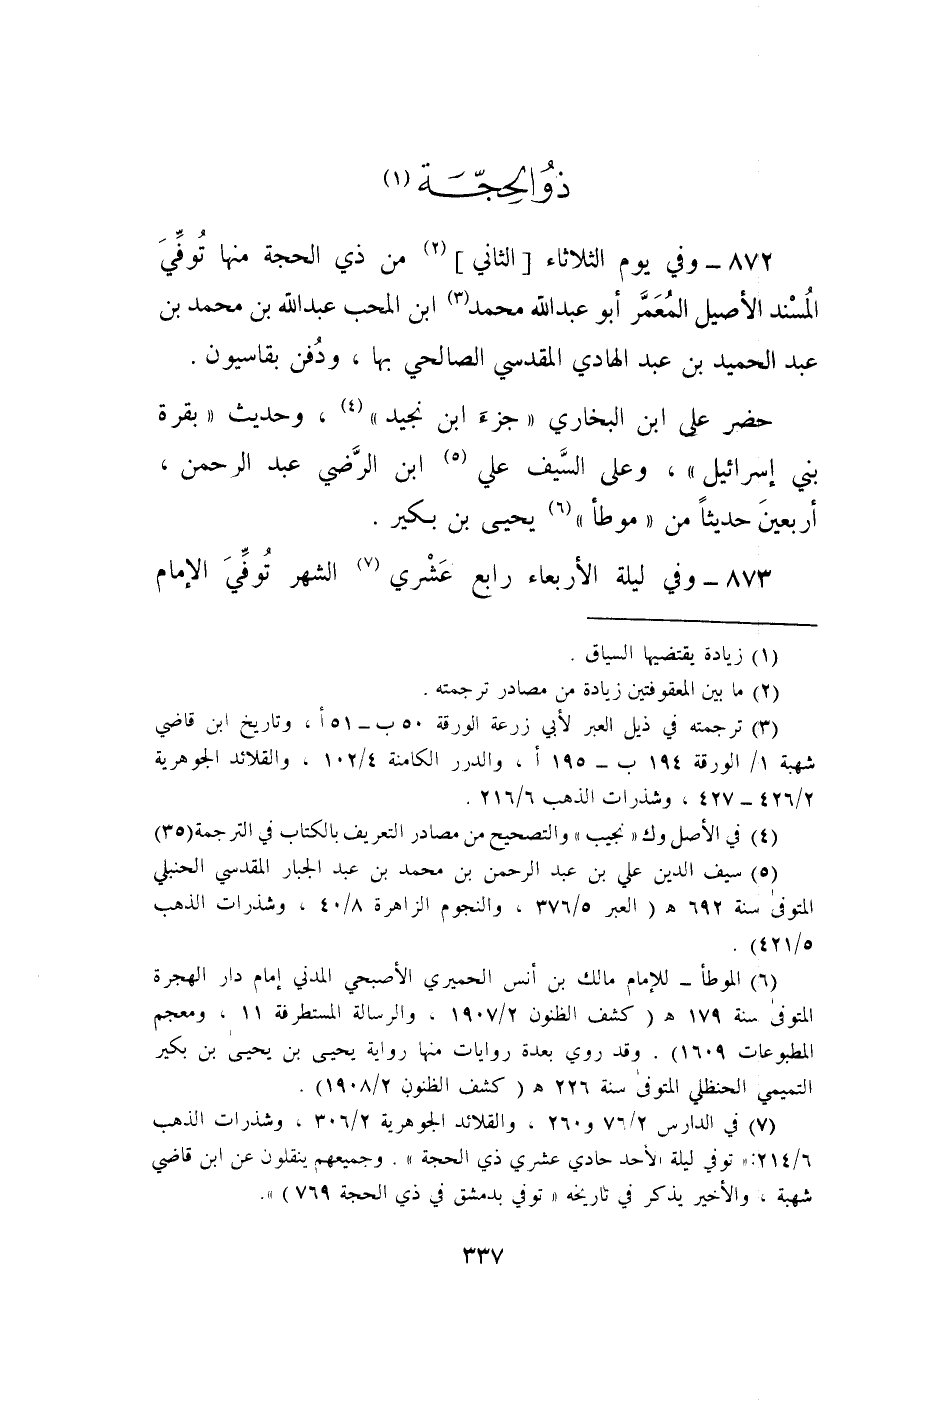 ذُو الحِجَّـة (١)
٨٧٢ ـ وفي يوم الثلاثاء [ الثاني ] (٢) من ذي الحجة منها تُوفِّيَ
المُسْند الأصيل المُعَمَّر أبو عبدالله محمد(٣) ابن المحب عبدالله بن محمد بن
عبد الحميد بن عبد الهادي المقدسي الصالحي بها ، ودُفن بقاسيون .
حضر على ابن البخاري « جزءَ ابن نجيد» (٤) ، وحديث « بقرة
بني إسرائيل » ، وعلى السَّيف علي (٥) ابن الرَّضي عبد الرحمن ،
أربعينَ حديثاً من « موطأ »(٦) يحيـى بن بكير .
٨٧٣ ـ وفي ليلة الأربعاء رابع عَشْري (٧) الشهر تُوفِّيَ الإمام
(١) زيادة يقتضيها السياق .
(٢) ما بين المعقوفتين زيادة من مصادر ترجمته .
(٣) ترجمته في ذيل العبر لأبي زرعة الورقة ٥٠ ب ـ ٥١ أ ، وتاريخ ابن قاضي
شهبة ١/ الورقة ١٩٤ ب ـ ١٩٥ أ ، والدرر الكامنة ١٠٢/٤ ، والقلائد الجوهرية
٤٢٦/٢ ـ ٤٢٧ ، وشذرات الذهب ٢١٦/٦ .
(٤) في الأصل وك« نجيب » والتصحيح من مصادر التعريف بالكتاب في الترجمة(٣٥)
(٥) سيف الدين علي بن عبد الرحمن بن محمد بن عبد الجبار المقدسي الحنبلي
المتوفىٰ سنة ٦٩٢ هـ ( العبر ٣٧٦/٥ ، والنجوم الزاهرة ٤٠/٨ ، وشذرات الذهب
٤٢١/٥) .
(٦) الموطأ ـ للإمام مالك بن أنس الحميري الأصبحي المدني إمام دار الهجرة
المتوفىٰ سنة ١٧٩ هـ ( كشف الظنون ١٩٠٧/٢ ، والرسالة المستطرفة ١١ ، ومعجم
المطبوعات ١٦٠٩) . وقد روي بعدة روايات منها رواية يحيـى بن يحيـىٰ بن بكير
التميمي الحنظلي المتوفىٰ سنة ٢٢٦ هـ ( كشف الظنون ١٩٠٨/٢) .
(٧) في الدارس ٧٦/٢ و٢٦٠ ، والقلائد الجوهرية ٣٠٦/٢ ، وشذرات الذهب
٢١٤/٦:« توفي ليلة الأحد حادي عشري ذي الحجة » . وجميعهم ينقلون عن ابن قاضي
شهبة ، والأخير يذكر في تاريخه « توفي بدمشق في ذي الحجة ٧٦٩ ) ».
٣٣٧